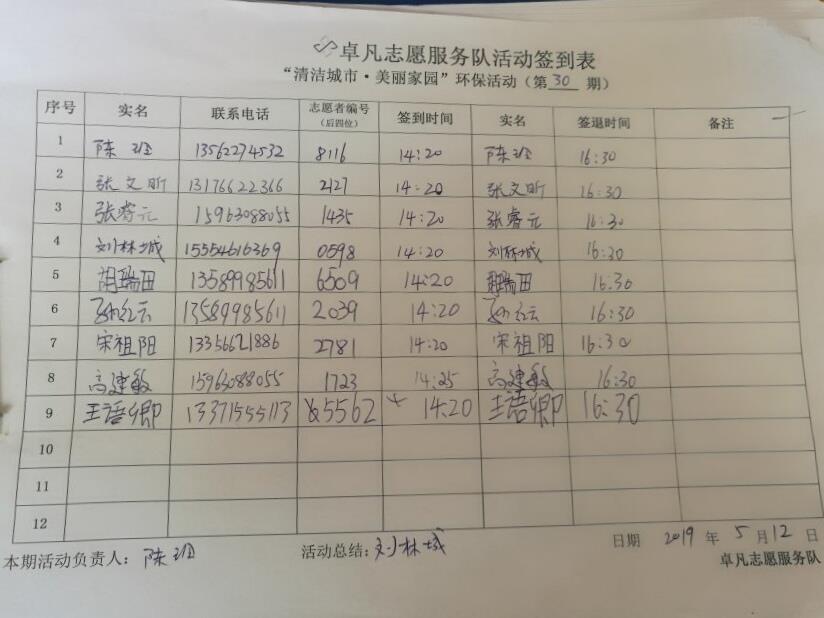 卓凡志愿服务队活动签到表
“清洁城市·美丽家园”环保活动（第30期）
序号 实名 联系电话 志愿者编号（后四位） 签到时间 实名 签退时间 备注
1 陈班 13562274532 8116 14:20 陈班 16:30
2 张文昕 13176622366 2127 14:20 张文昕 16:30
3 张睿元 15963088055 1435 14:20 张睿元 16:30
4 刘林城 15554616369 0598 14:20 刘林城 16:30
5 胡瑞田 13589985611 6509 14:20 胡瑞田 16:30
6 孙红云 13589985611 2039 14:20 孙红云 16:30
7 宋祖阳 13356621886 2781 14:20 宋祖阳 16:30
8 高建敏 15963088055 1723 14:25 高建敏 16:30
9 王语卿 13371555113 5562 14:20 王语卿 16:30
10
11
12
本期活动负责人：陈班 活动总结：刘林城 日期 2019年5月12日
卓凡志愿服务队